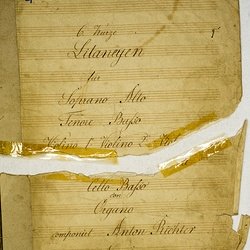 6 Kurze
Litaneyen
für
Soprano Alto
Tenore Basso
Violino 1 Violino 2
Cello Basso
con
Organo
componiet Anton Richter